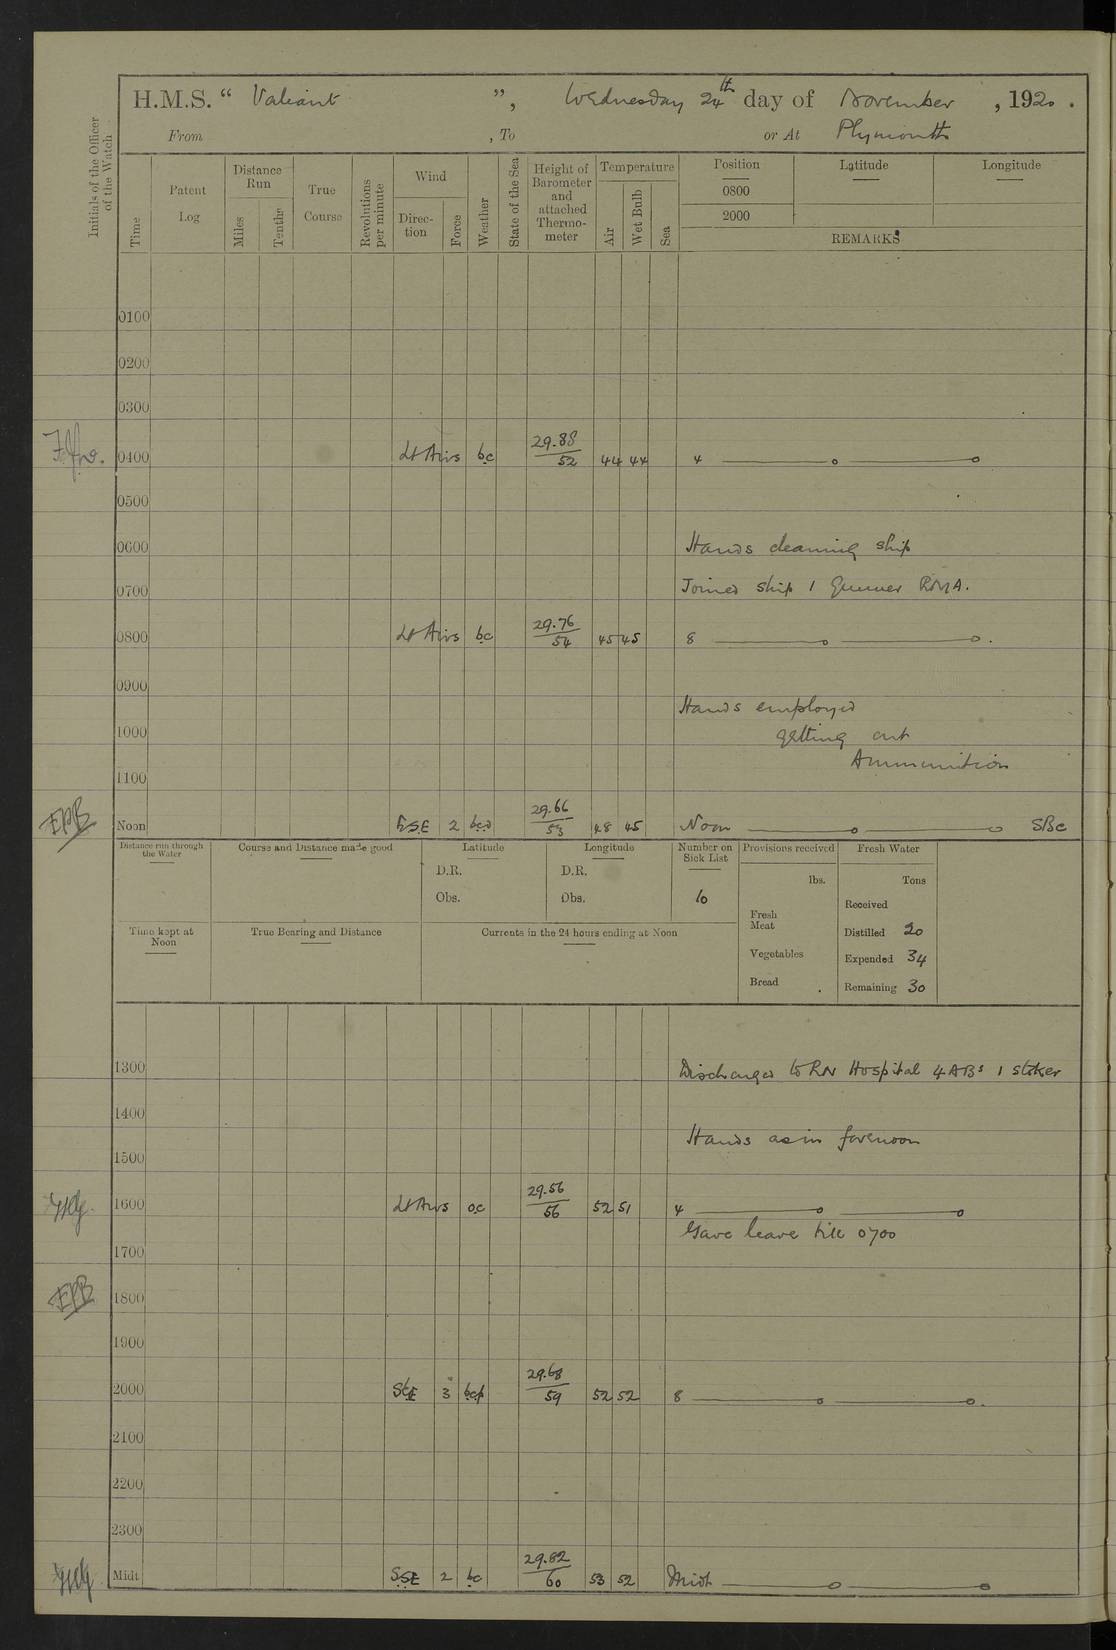 H.M.S. “ Valiant ”, Wednesday 24th day of November , 1920 .
From , To or At Plymouth
Initials of the Officer of the Watch
Time
Patent Log
Distance Run
Miles
Tenths
True Course
Revolutions per minute
Wind
Direc-tion
Force
Weather
State of the Sea
Height of Barometer and attached Thermo-meter
Temperature
Air
Wet Bulb
Sea
Position Latitude Longitude
0800
2000
REMARKS
0100
0200
0300
0400 Lt Airs bc 29.88 52 44 44 4
0500
0600 Hands cleaning ship
0700 Joined ship 1 Gunner RMA.
0800 Lt Airs bc 29.76 54 45 45 8
0900
Hands employed
1000 getting out
Ammunition
1100
EPB Noon SSE 2 29.66 53 48 45 Noon
Distance run through the Water
Course and Distance made good
Latitude
D.R.
Obs.
Longitude
D.R.
Obs.
Number on Sick List
10
Provisions received
lbs.
Fresh Meat
Vegetables
Bread
Fresh Water
Tons
Received
Distilled 20
Expended 34
Remaining 30
Time kept at Noon
True Bearing and Distance
Currents in the 24 hours ending at Noon
1300 Discharged to RN Hospital 4 ABs 1 stoker
1400
Hands as in forenoon
1500
1600 Lt Airs oc 29.56 56 52 51 4
Gave leave till 0700
1700
EPB 1800
1900
2000 SbE 3 bcp 29.68 59 52 52 8
2100
2200
2300
Midt. SSE 2 bc 29.82 60 53 52 Midt